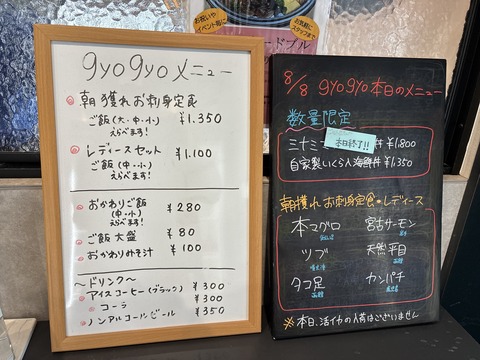 お祝いや
イベント等に
お気軽に
スタッフまで
ードブル
gyogyoメニュー
朝獲れお刺身定食
ご飯(大・中・小) ¥1.350
えらべます!
レディースセット
ご飯(中・小) ¥1.100
えらべます!
おかわりご飯 ¥280
(中・小)
ご飯 大盛 ¥80
おかわりみそ汁 ¥100
〜ドリンク〜
アイスコーヒー(ブラック) ¥300
コーラ ¥300
ノンアルコールビール ¥350
8/8 gyogyo本日のメニュー
数量限定
ミナミ 本日終了!! 丼 ¥1,800
自家製いくら入海鮮丼 ¥1,350
朝獲れお刺身定食・レディース
本マグロ 宮古サーモン
ツブ 天然平目
タコ足 カンパチ
※本日、活イカの入荷はございません